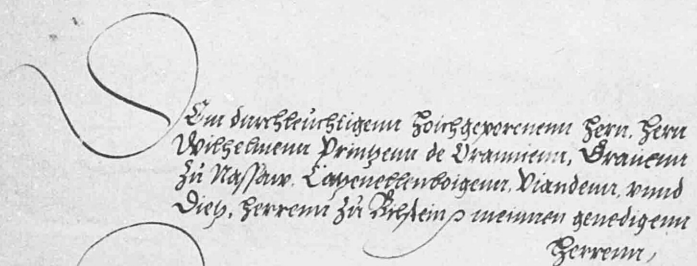 Dem durchleuchtigenn hoichgeporenenn hern, hern
Wilhelmenn Printzenn de Orannienn, Grauenn
zu Nassaw, Catzenellenboigenn, Viandenn, vnnd
Dietz, herrenn zu Bilstein, meinnen genedigenn
herrenn,